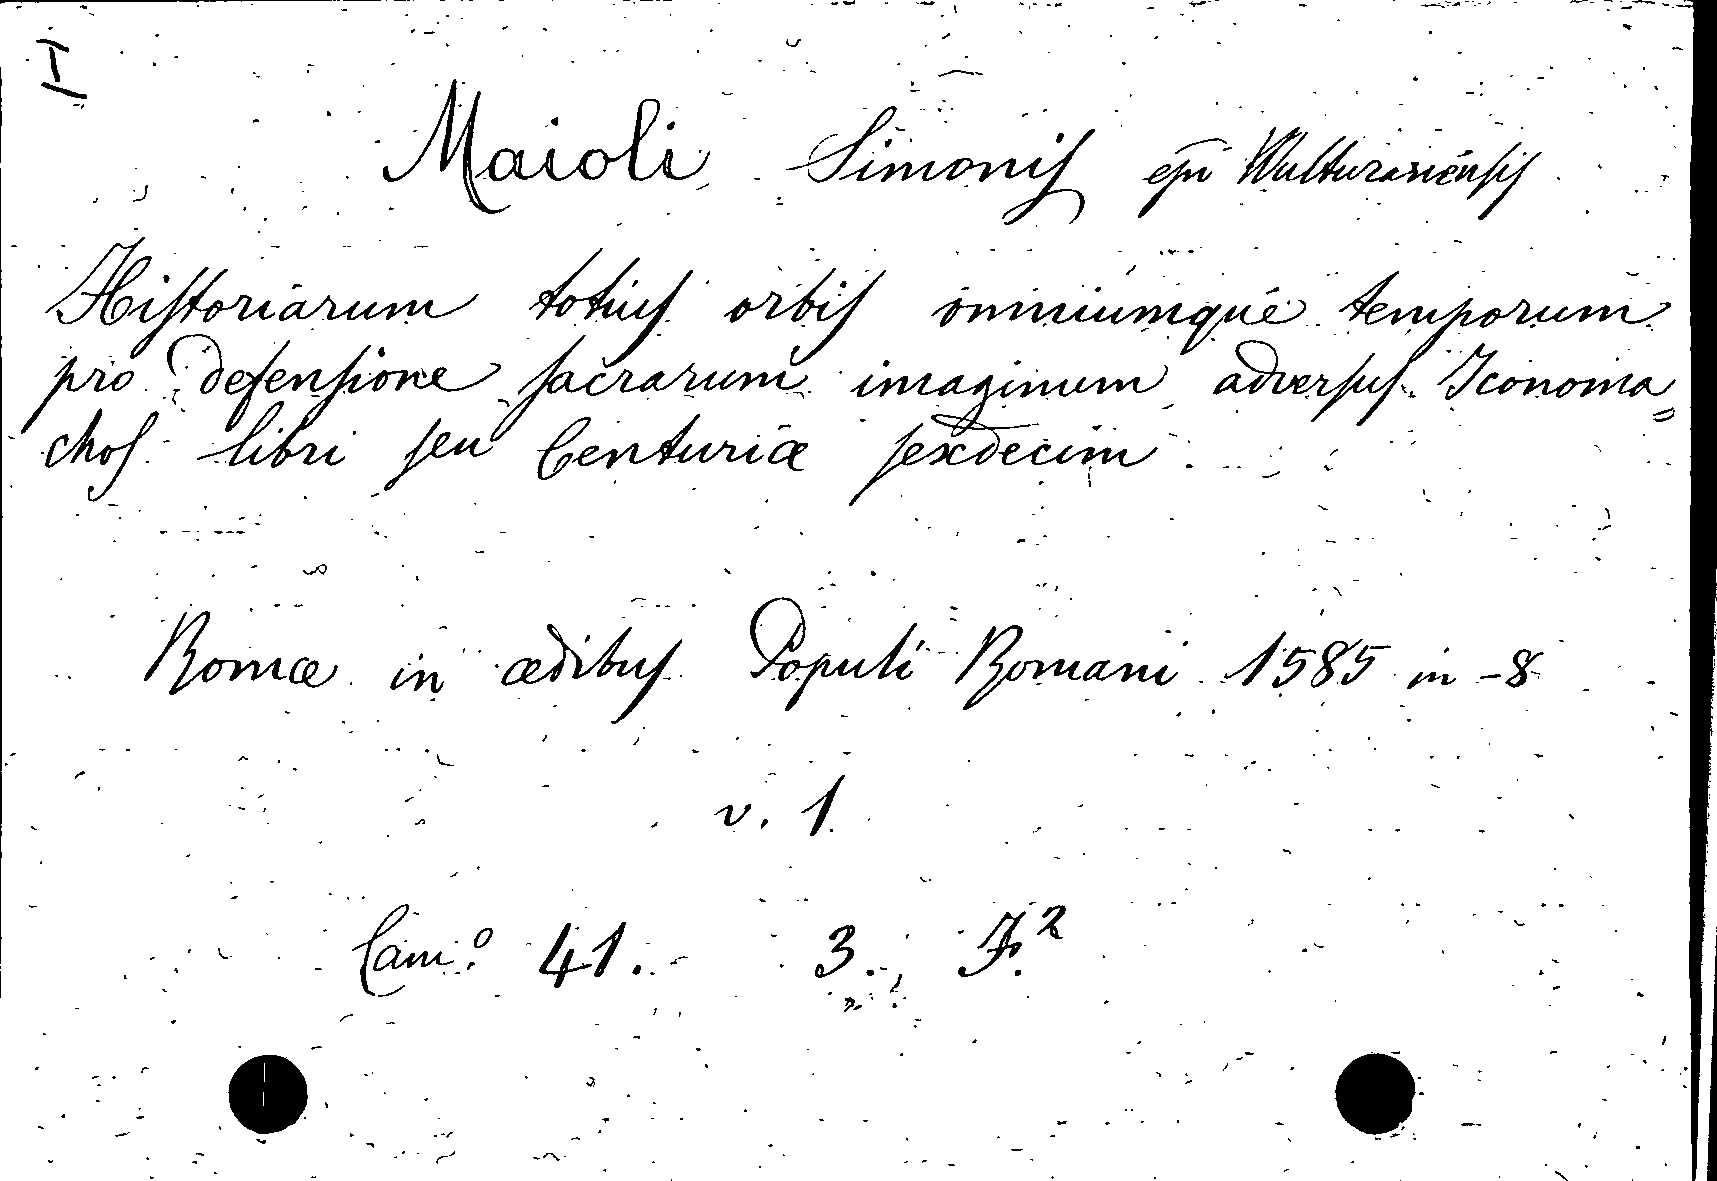 I
Maioli Simonis ep̄i Wulturariensis
Historiarum totius orbis omniumque temporum
pro defensione sacrarum imaginum adversus Iconoma„
chos libri seu Centuriæ sexdecim
Romæ in ædibus Populi Romani 1585 in -8
v. 1
Cam.º 41. 3. F.²